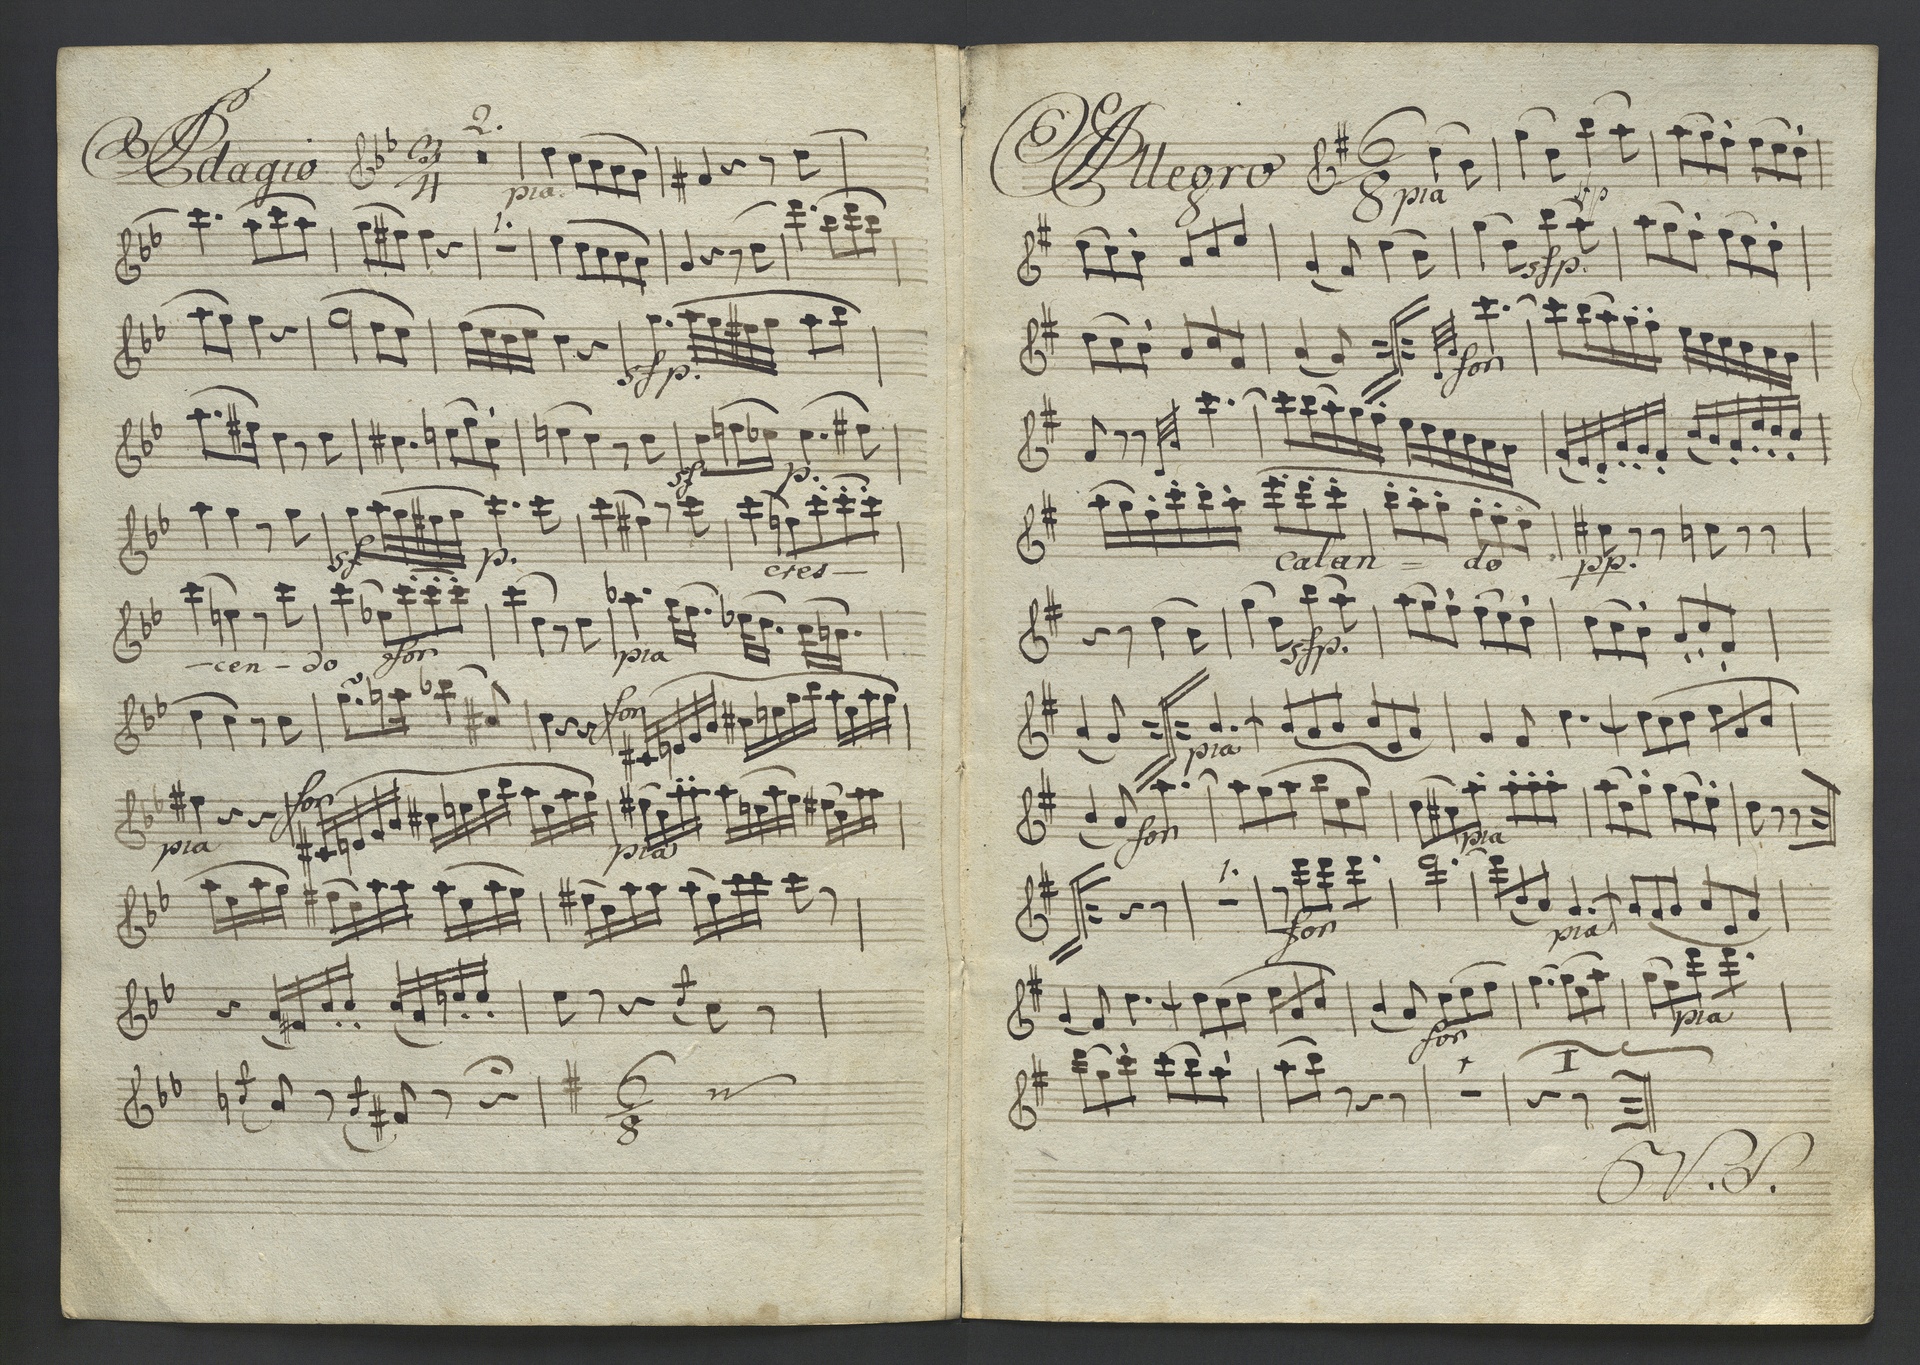 Adagio 3/4 2. pia.
1.
sfp.
sf p.
sf p. cres-
-cen-do for pia
for
pia for pia
6/8
Allegro 6/8 pia
sfp.
for
calan = do pp.
sfp.
pia
for pia
1. for pia
for pia
I
V.S.